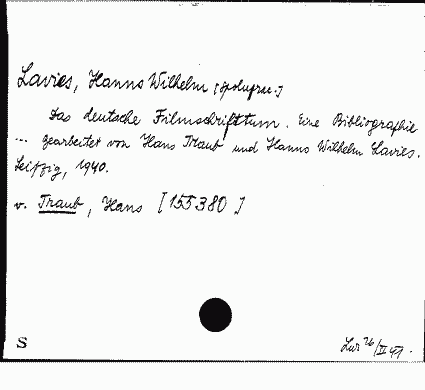 Lavies, Hanns Wilhelm [współoprac.]
Das deutsche Filmschrifttum. Eine Bibliographie
... gearbeitet von Hans Traub und Hanns Wilhelm Lavies.
Leipzig, 1940.
v. Traub, Hans [155380]
S